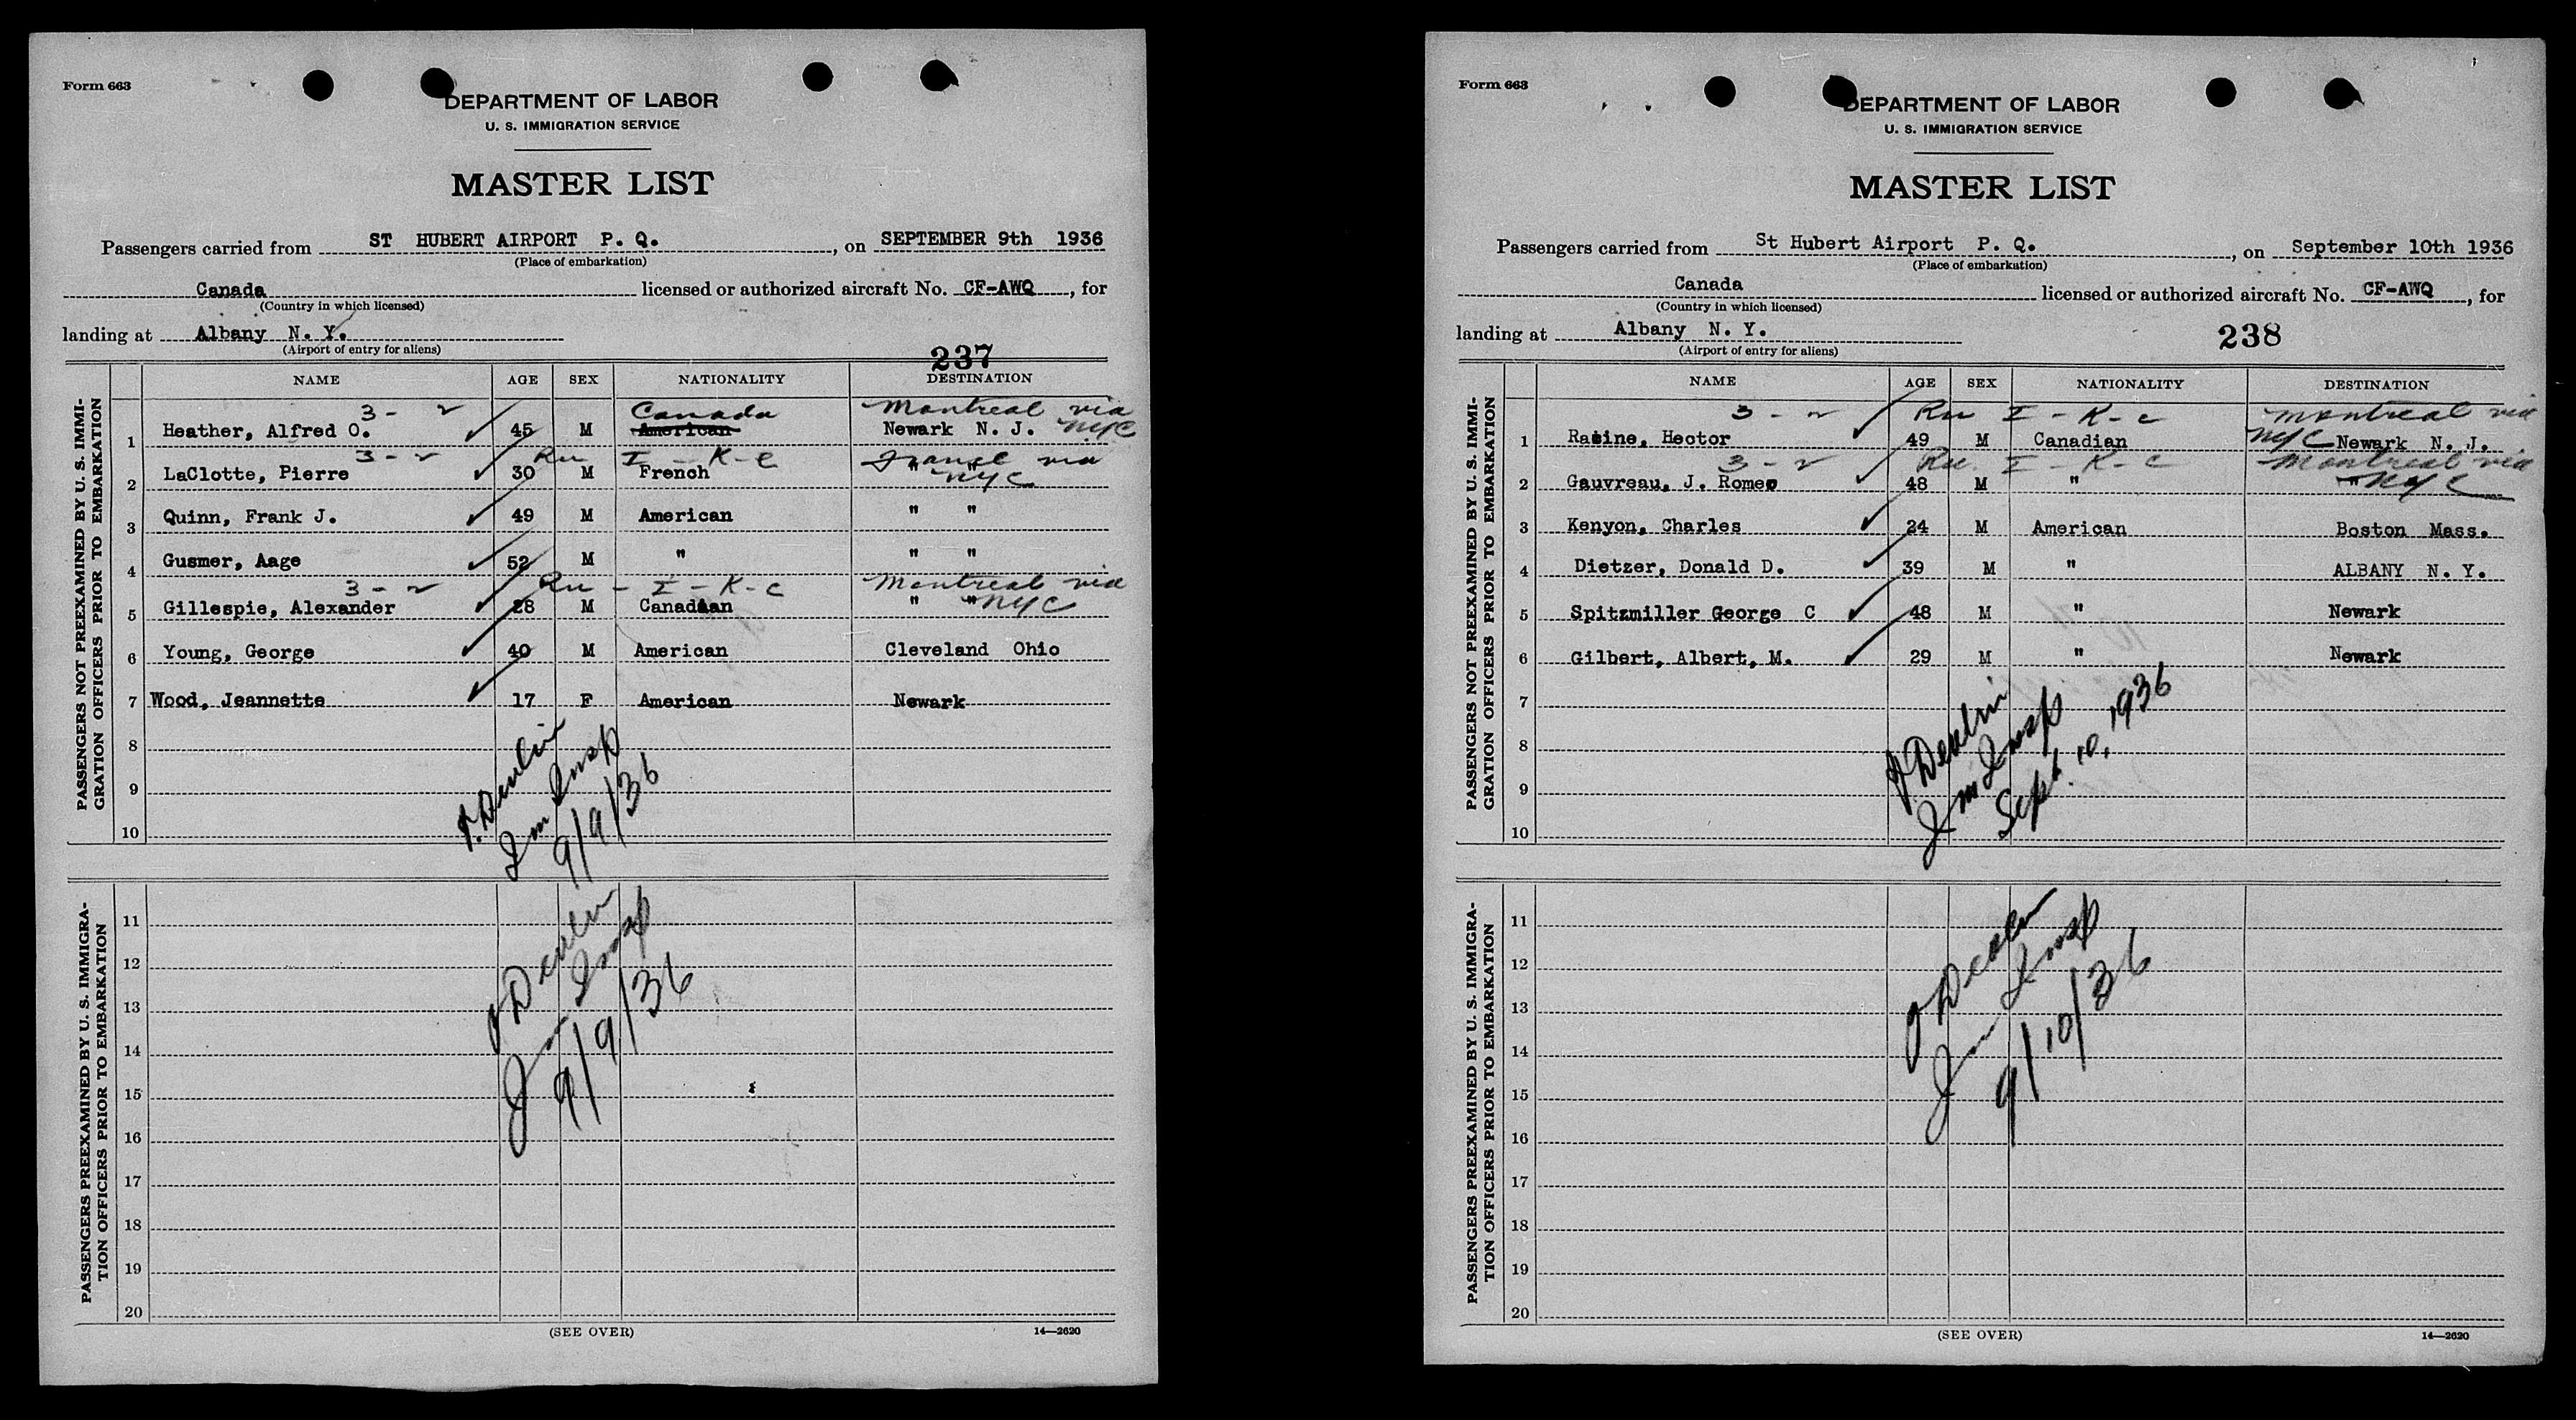 Form 663
DEPARTMENT OF LABOR
U. S. IMMIGRATION SERVICE
MASTER LIST
Passengers carried from ST HUBERT AIRPORT P. Q., on SEPTEMBER 9th 1936
(Place of embarkation)
Canada licensed or authorized aircraft No. CF-AWQ, for
(Country in which licensed)
landing at Albany N. Y.
(Airport of entry for aliens)
237
NAME AGE SEX NATIONALITY DESTINATION
PASSENGERS NOT PREEXAMINED BY U. S. IMMI-
GRATION OFFICERS PRIOR TO EMBARKATION
3 - 2 Canada Montreal via
1 Heather, Alfred O. 45 M American Newark N. J. NYC
3 - 2 I - K - C France via
2 LaClotte, Pierre 30 M French " " NYC
3 Quinn, Frank J. 49 M American " "
4 Gusmer, Aage 52 M " " "
3 - 2 I - K - C Montreal via
5 Gillespie, Alexander 28 M Canadian " " NYC
6 Young, George 40 M American Cleveland Ohio
7 Wood, Jeannette 17 F American Newark
8
9
10
J. Devlin
Im Insp
9/9/36
PASSENGERS PREEXAMINED BY U. S. IMMIGRA-
TION OFFICERS PRIOR TO EMBARKATION
11
12
13
14
15
16
17
18
19
20
J Devlin
Im Insp
9/9/36
(SEE OVER)
14—2620
Form 663
DEPARTMENT OF LABOR
U. S. IMMIGRATION SERVICE
MASTER LIST
Passengers carried from St Hubert Airport P. Q., on September 10th 1936
(Place of embarkation)
Canada licensed or authorized aircraft No. CF-AWQ, for
(Country in which licensed)
landing at Albany N. Y.
(Airport of entry for aliens)
238
NAME AGE SEX NATIONALITY DESTINATION
PASSENGERS NOT PREEXAMINED BY U. S. IMMI-
GRATION OFFICERS PRIOR TO EMBARKATION
3 - 2 I - K - C Montreal via
1 Racine, Hector 49 M Canadian NYC Newark N. J.
3 - 2 I - K - C Montreal via
2 Gauvreau, J. Romeo 48 M " " NYC
3 Kenyon, Charles 24 M American Boston Mass.
4 Dietzer, Donald D. 39 M " ALBANY N. Y.
5 Spitzmiller George C 48 M " Newark
6 Gilbert, Albert, M. 29 M " Newark
7
8
9
10
J. Devlin
Im Insp
Sept. 10, 1936
PASSENGERS PREEXAMINED BY U. S. IMMIGRA-
TION OFFICERS PRIOR TO EMBARKATION
11
12
13
14
15
16
17
18
19
20
J Devlin
Im Insp
9/10/36
(SEE OVER)
14—2620